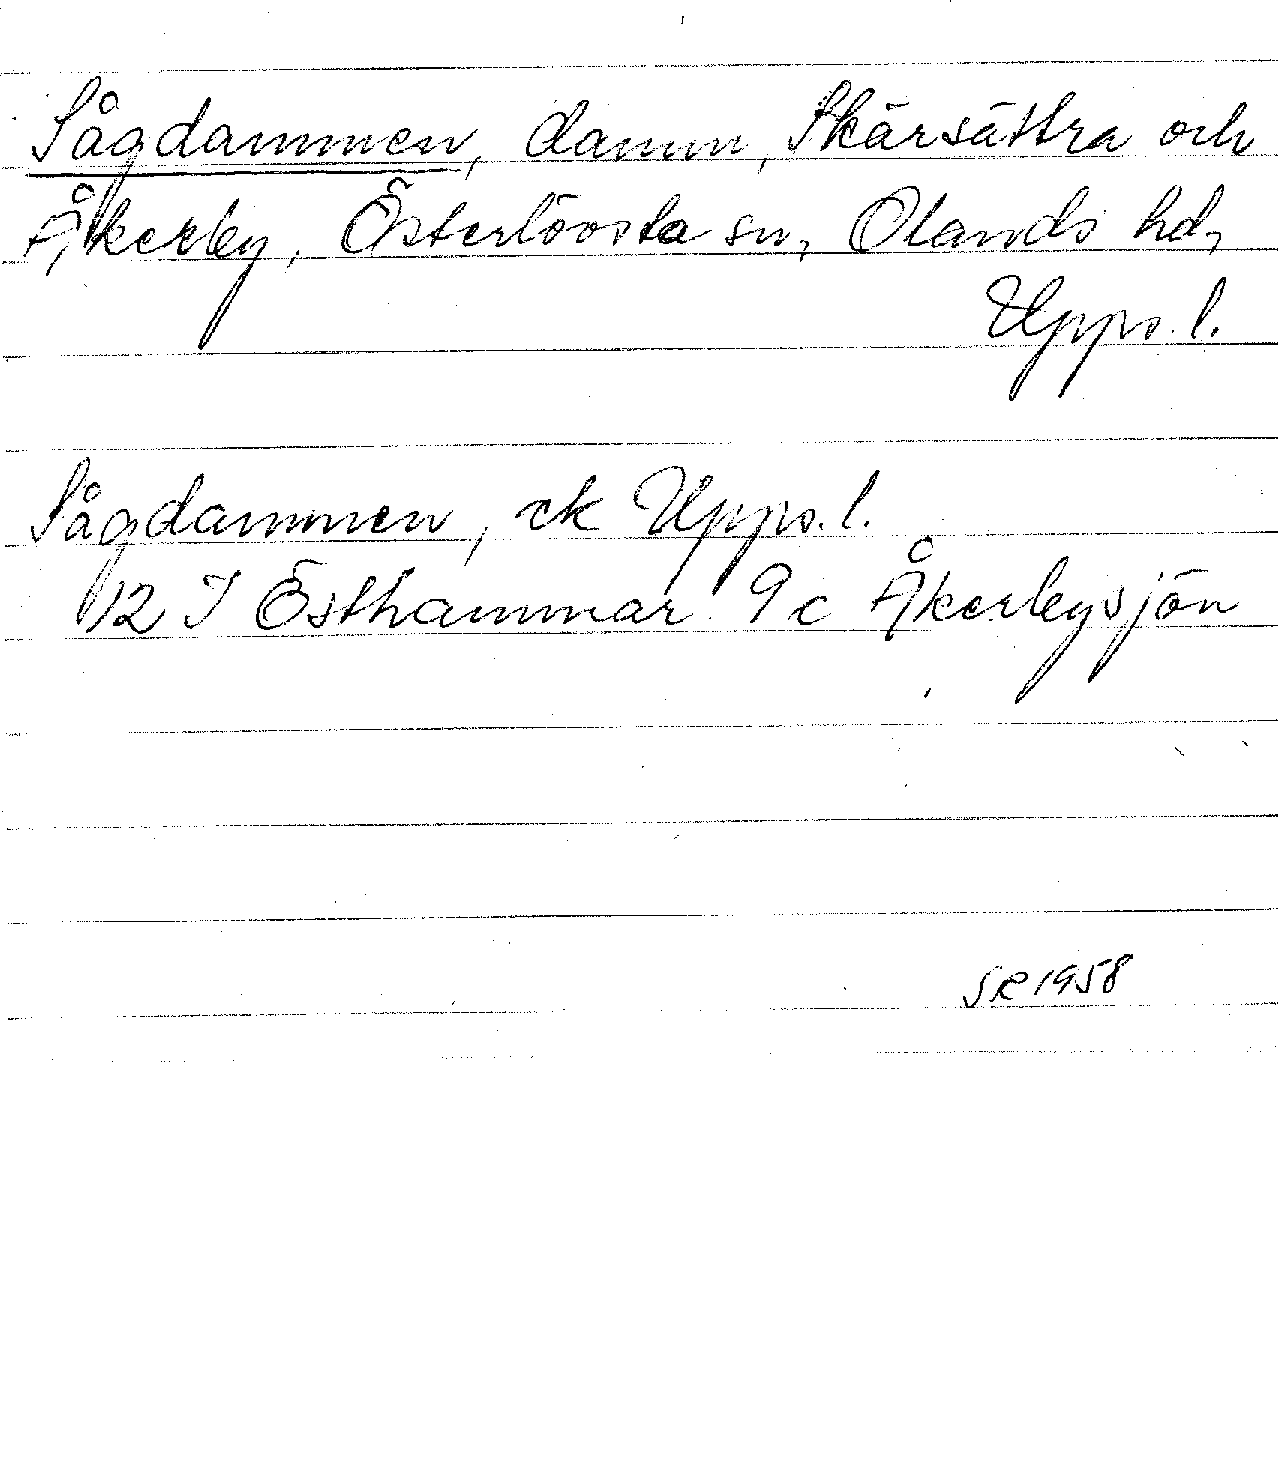 Sågdammen, damm, Skärsättra och
Åkerby, Österlövsta sn, Olands hd,
Upps. l.
Sågdammen, ek Upps. l.
12 I Östhammar 9c Åkerbysjön
SR 1958